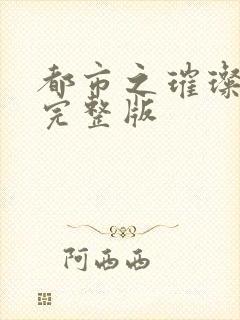 都市之璀璨
完整版
阿西西